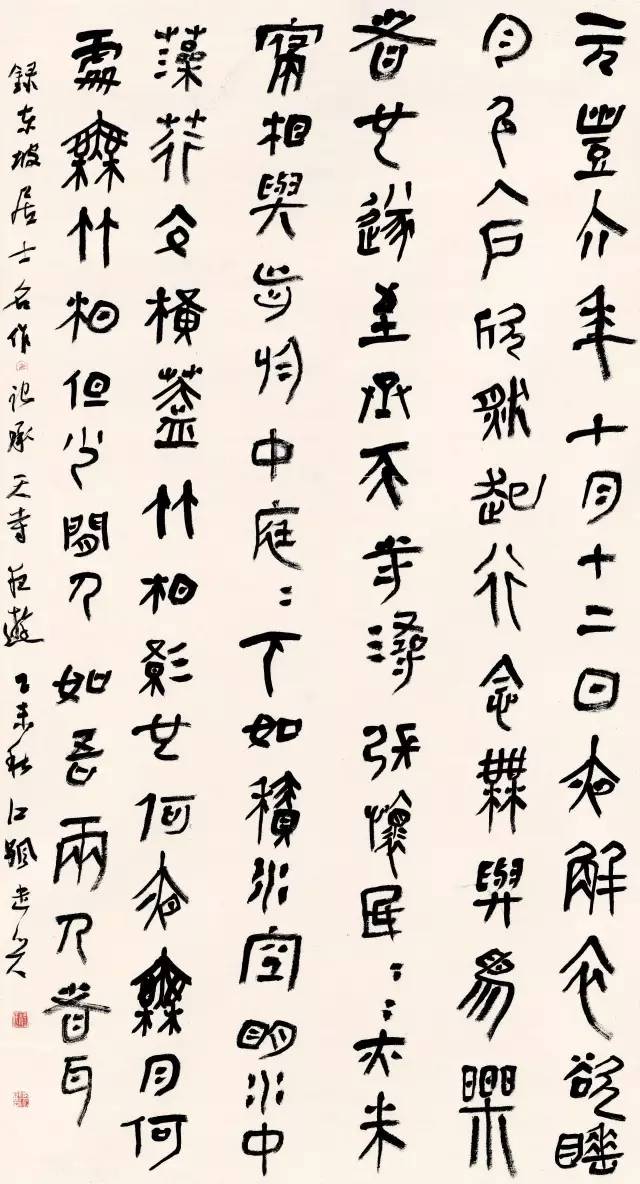 元豐六年十月十二日夜解衣欲睡
月色入户欣然起行念無與爲樂
者也遂至承天寺尋張懷民〻亦未
寢相與步於中庭〻下如積水空明水中
藻荇交橫蓋竹柏影也何夜無月何
處無竹柏但少閒人如吾兩人者耳
録東坡居士名作記承天寺夜遊乙未秋江